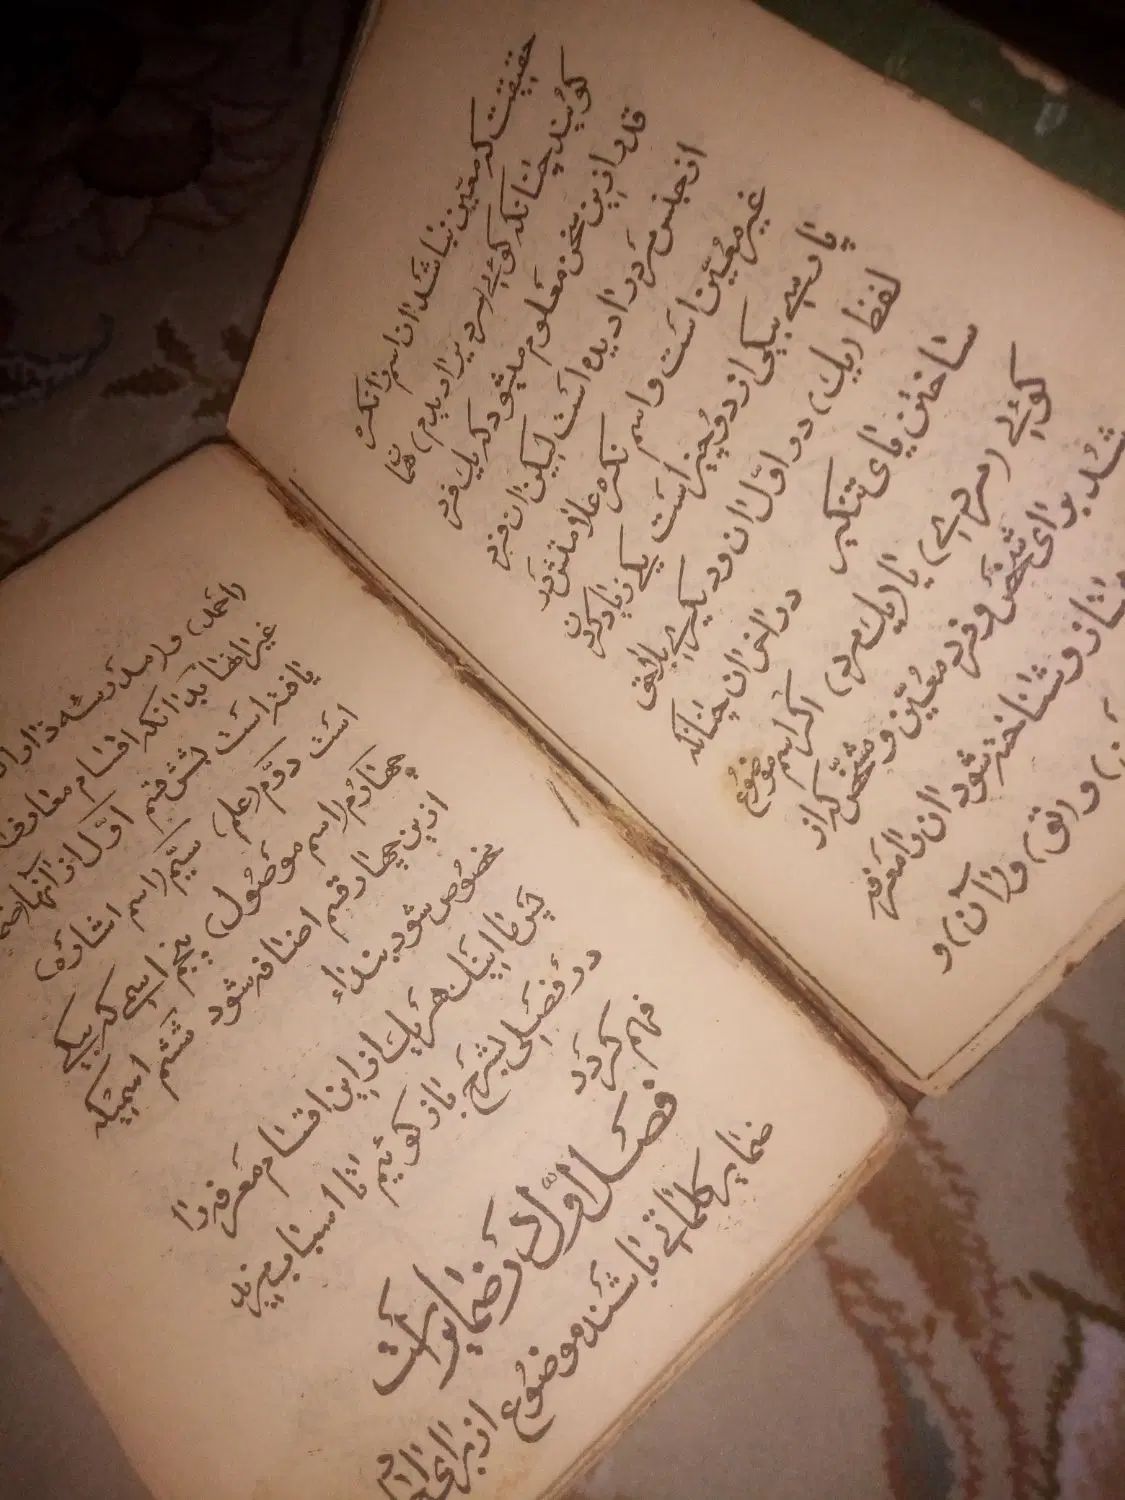 حقیقت که معیّن نباشد ان اسم را نکره
گویند چنانکه گوئے (مردیرا دیدم) همان
قدر ازین سخن معلوم میشود که یک فرد
از جنس مرد را دیده است لیکن ان فرد
غیر معیّن است و اسم نکره علامتش در
پارسے بیکی از دو چیز است یکے زیاد کردن
لفظ (یک) در اوّل ان و دیگرے لاحق
ساختن یای تنکیر در اخر ان چنانکه
گوئے (مردے) یا (یک مرد) اگر اسم موضوع
شد برای شخص و فرد معیّن و مشخّص که از
ممتاز و شناخته شود ان را معرفه
و (تو) و (آن) و
(احمد) و (مدرسه
غیر اینها بدانکه اقسام معارف
یافته است بشش قسم اوّل از آنها
است دوّم (علم) سیّم (اسم اشاره)
چهارم (اسم موصول) پنجم اسمے که بیکے
ازین چهار قسم اضافه شود ششم اسمیکه
مخصوص شود بنداء
پس ما اینک هر یک ازین اقسام معرفه را
در فصلی بشرح باز گوئیم تا اسباب مزید
فهم گردد
فصل اوّل در ضمایر است
ضمایر کلماتے باشند موضوع از برای